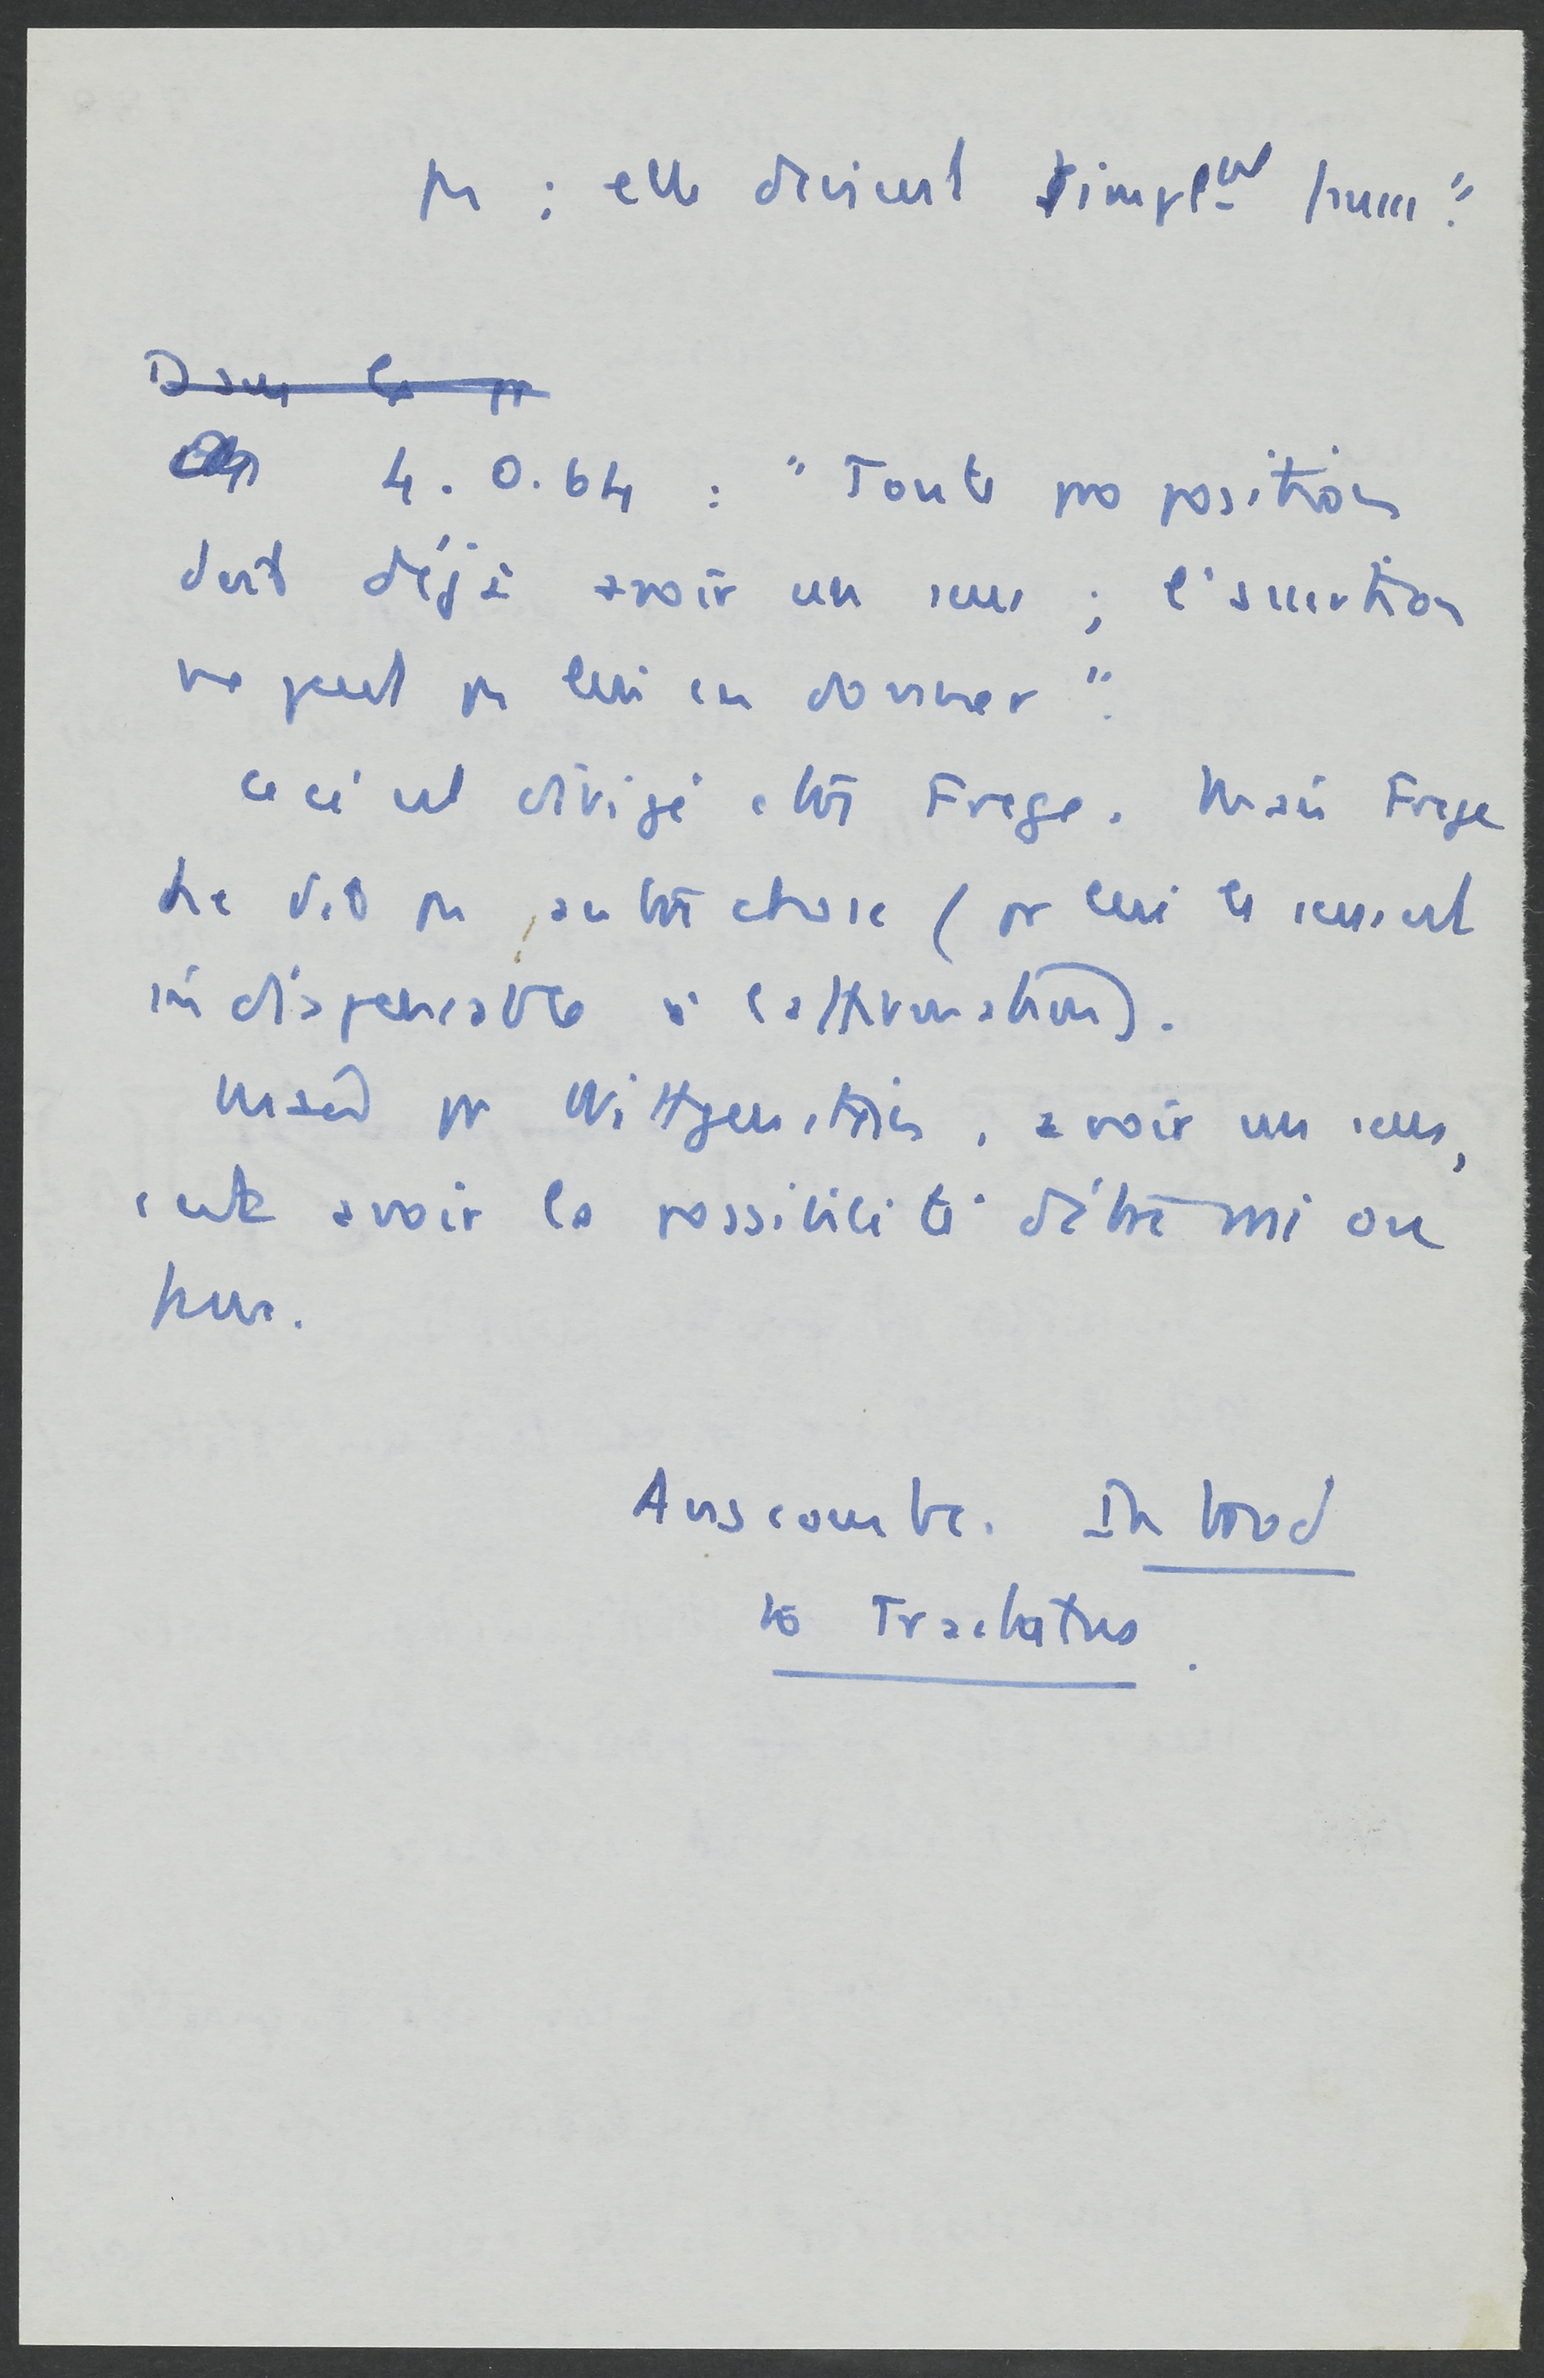 pas ; elle devient simplmt fausse".
Dans la pr
4.0.64 : "Toute proposition
doit déjà avoir un sens ; l'assertion
ne peut pas lui en donner".
Ceci est dirigé ctre Frege. Mais Frege
ne dit pas autre chose (pr lui le sens est
indispensable à l'affirmation).
Mais pr Wittgenstein, avoir un sens,
c'est avoir la possibilité d'être vrai ou
faux.
Anscombe. Introd
to Tractatus.